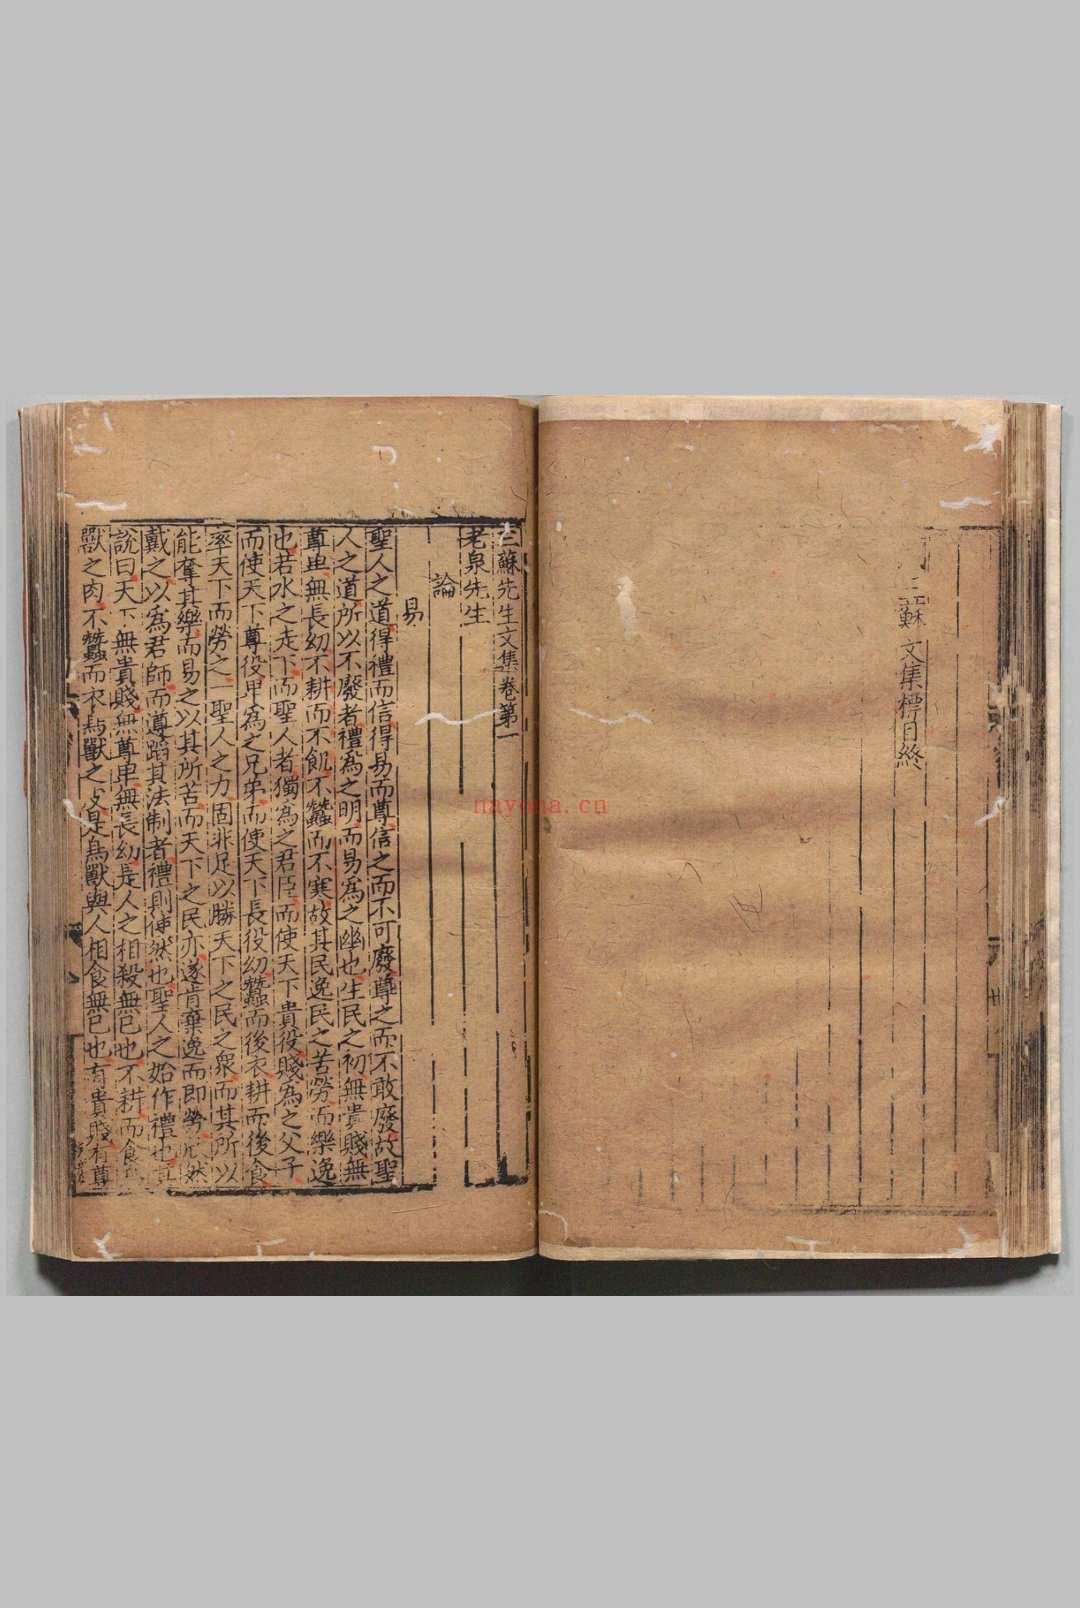 三蘇文集標目終
三蘇先生文集卷第一
老泉先生
論
易
聖人之道得禮而信得易而尊信之而不可廢尊之而不敢廢故聖
人之道所以不廢者禮爲之明而易爲之幽也生民之初無貴賤無
尊卑無長幼不耕而不飢不蠶而不寒故其民逸民之苦勞而樂逸
也若水之走下而聖人者獨爲之君臣而使天下貴役賤爲之父子
而使天下尊役卑爲之兄弟而使天下長役幼蠶而後衣耕而後食
率天下而勞之一聖人之力固非足以勝天下之民之衆而其所以
能奪其樂而易之以其所苦而天下之民亦遂肯棄逸而即勞欣然
戴之以爲君師而遵蹈其法制者禮則使然也聖人之始作禮也其
說曰天下無貴賤無尊卑無長幼是人之相殺無已也不耕而食鳥
獸之肉不蠶而衣鳥獸之皮是鳥獸與人相食無已也有貴賤有尊
nayona.cn